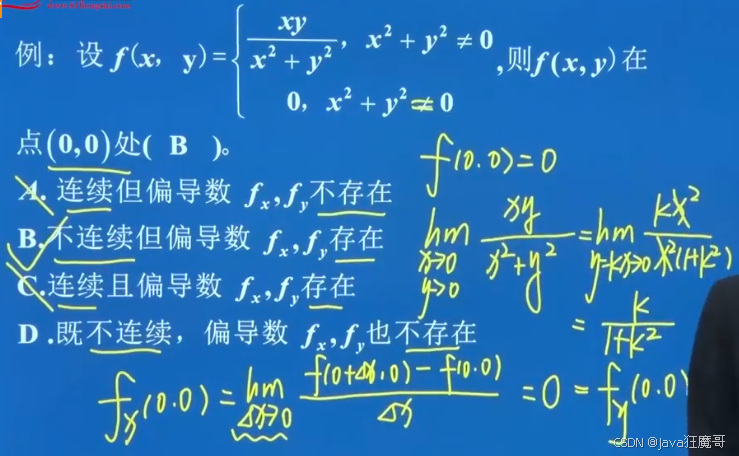 例：设 f(x, y)= { xy/(x² + y²), x² + y² ≠ 0
0, x² + y² = 0 ,则f(x, y)在
点(0,0)处( B )。
f(0.0)=0
A. 连续但偏导数 fₓ,fᵧ不存在
B.不连续但偏导数 fₓ,fᵧ存在
C.连续且偏导数 fₓ,fᵧ存在
D .既不连续，偏导数 fₓ,fᵧ也不存在
lim x→0 y→0 xy/(x²+y²) = lim y=kx→0 kx²/(x²(1+k²))
= k/(1+k²)
fₓ(0.0) = lim Δx→0 (f(0+Δx.0) - f(0.0))/Δx = 0 = fᵧ(0.0)
CSDN @Java狂魔哥